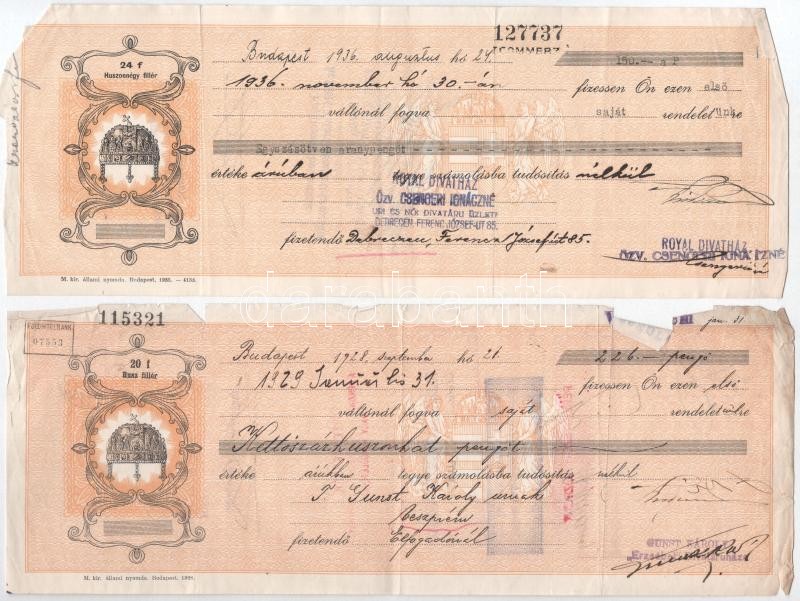 127737
24 f
Huszonnégy fillér
Budapest 1936. augusztus hó 24.
150.-- a P
1936. november hó 30.-án
fizessen Ön ezen első
váltónál fogva
saját
rendelet ünk re
Egyszázötven aranypengőt
értéke áruban
tegye számolásba tudósítás nélkül
ROYAL DIVATHÁZ
ÖZV. CSENGERI IGNÁCZNÉ
URI ÉS NŐI DIVATÁRU ÜZLETE
DEBRECEN FERENC JÓZSEF-UT 85.
fizetendő Debreczen, Ferencz József út 85.
ROYAL DIVATHÁZ
ÖZV. CSENGERI IGNÁCZNÉ
M. kir. állami nyomda. Budapest, 1935. — 4135.
darabanth
115321
07553
jan. 31
20 f
Husz fillér
Budapest 1928. szeptember hó 21.
226.— pengő
1929 Január hó 31.
fizessen Ön ezen első
váltónál fogva saját
rendeletemre
Kettőszázhuszonhat pengőt
értéke árukban tegye számolásba tudósítás nélkül
T. Gunst Károly urnak
Veszprém
fizetendő Elfogadónál
GUNST KÁROLY
M. kir. állami nyomda. Budapest, 1928.